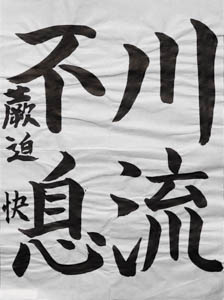 川流
不息
蕨迫 快